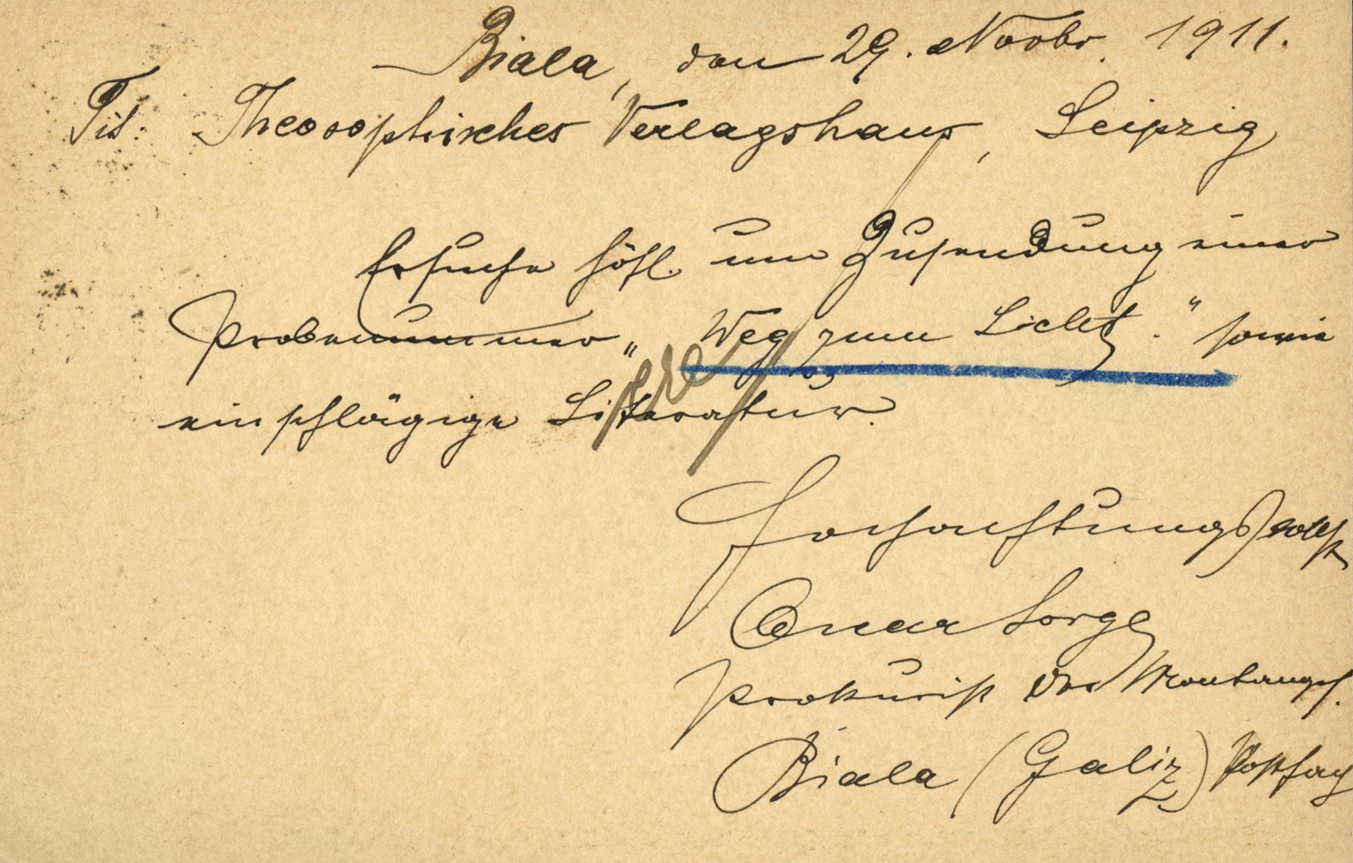 Biala, den 29. Novbr. 1911.
Tit. Theosophisches Verlagshaus, Leipzig
Ersuche höfl. um Zusendung einer
Probenummer „Weg zum Licht." sowie
einschlägige Literatur.
Hochachtungsvollst
Oscar Sorge
Prokurist der Montanges.
Biala (Galiz) Postfach